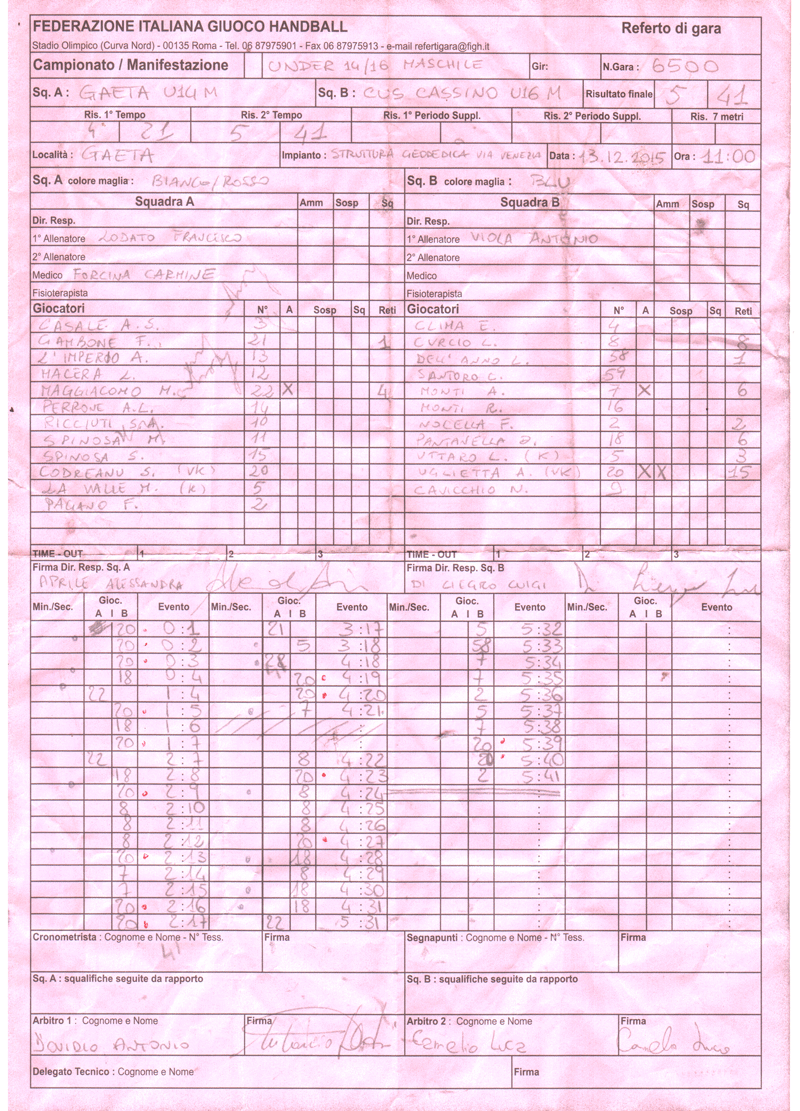 FEDERAZIONE ITALIANA GIUOCO HANDBALL
Referto di gara
Stadio Olimpico (Curva Nord) - 00135 Roma - Tel. 06 87975901 - Fax 06 87975913 - e-mail refertigara@figh.it
Campionato / Manifestazione UNDER 14/16 MASCHILE Gir: N.Gara : 6500
Sq. A : GAETA U14 M Sq. B : CUS CASSINO U16 M Risultato finale 5 41
Ris. 1° Tempo Ris. 2° Tempo Ris. 1° Periodo Suppl. Ris. 2° Periodo Suppl. Ris. 7 metri
4 21 5 41
Località : GAETA Impianto : STRUTTURA GEODEDICA VIA VENEZIA Data : 13.12.2015 Ora : 11:00
Sq. A colore maglia : BIANCO/ROSSO Sq. B colore maglia : BLU
Squadra A Amm Sosp Sq Squadra B Amm Sosp Sq
Dir. Resp. Dir. Resp.
1° Allenatore LODATO FRANCESCO 1° Allenatore VIOLA ANTONIO
2° Allenatore 2° Allenatore
Medico FORCINA CARMINE Medico
Fisioterapista Fisioterapista
Giocatori N° A Sosp Sq Reti Giocatori N° A Sosp Sq Reti
CASALE A.S. 3 CLIMA E. 4
GAMBONE F. 21 1 CURCIO L. 8 8
D'IMPERIO A. 13 DELL'ANNO L. 58 1
MACERA L. 12 SANTORO C. 59
MAGGIACOMO M. 22 X 4 MONTI A. 7 X 6
PERRONE A.L. 14 MONTI R. 16
RICCIUTI S.A. 10 NOCELLA F. 2 2
SPINOSA M. 11 PANTANELLA D. 18 6
SPINOSA S. 15 UTTARO L. (K) 5 3
CODREANU S. (VK) 20 UGLIETTA A. (VK) 20 X X 15
LA VALLE M. (K) 5 CAVICCHIO N. 9
PAGANO F. 2
TIME - OUT 1 2 3 TIME - OUT 1 2 3
Firma Dir. Resp. Sq. A Firma Dir. Resp. Sq. B
APRILE ALESSANDRA DI CICCO LUIGI
Min./Sec. Gioc. A I B Evento Min./Sec. Gioc. A I B Evento Min./Sec. Gioc. A I B Evento Min./Sec. Gioc. A I B Evento
20 0:1 21 3:17 5 5:32
20 0:2 5 3:18 58 5:33
20 0:3 4:18 7 5:34
18 0:4 20 4:19 7 5:35
22 1:4 20 4:20 2 5:36
20 1:5 7 4:21 5 5:37
18 1:6 7 5:38
20 1:7 20 5:39
22 2:7 8 4:22 20 5:40
18 2:8 20 4:23 2 5:41
20 2:9 8 4:24
8 2:10 8 4:25
8 2:11 8 4:26
8 2:12 20 4:27
20 2:13 18 4:28
7 2:14 8 4:29
7 2:15 18 4:30
20 2:16 18 4:31
20 2:17 22 5:31
Cronometrista : Cognome e Nome - N° Tess. Firma Segnapunti : Cognome e Nome - N° Tess. Firma
41
Sq. A : squalifiche seguite da rapporto Sq. B : squalifiche seguite da rapporto
Arbitro 1 : Cognome e Nome Firma Arbitro 2 : Cognome e Nome Firma
BOVIDIO ANTONIO
Delegato Tecnico : Cognome e Nome Firma